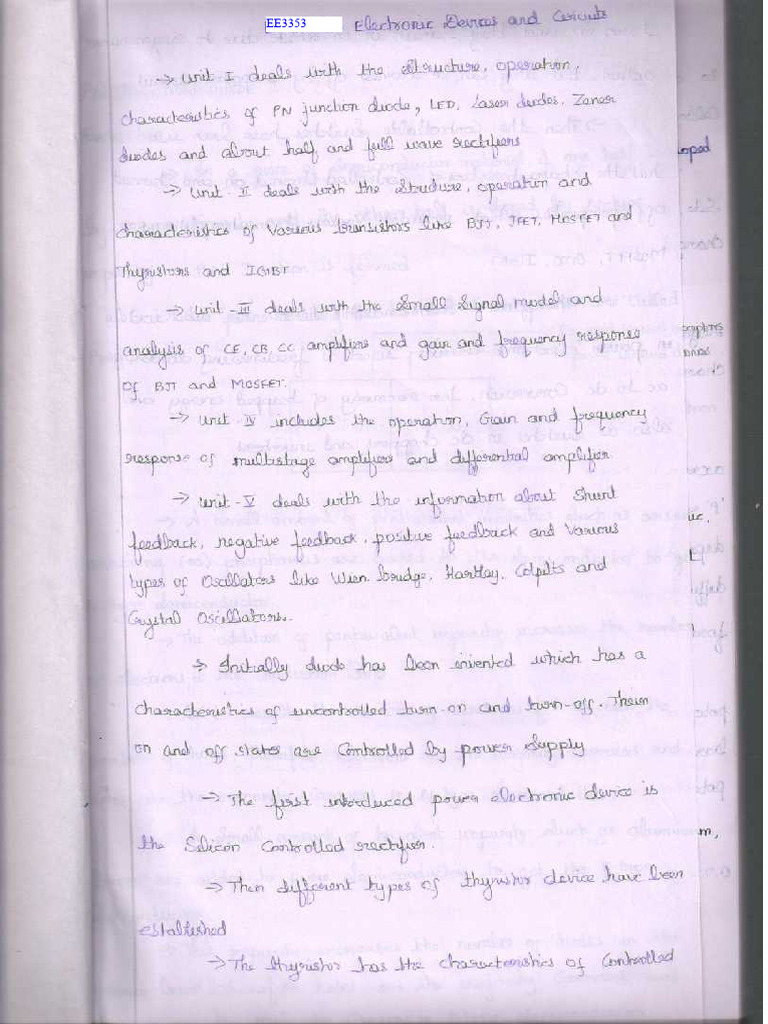 EE3353 Electronic Devices and Circuits
→ Unit I deals with the Structure, operation,
characteristics of PN junction diode, LED, Laser diodes, Zener
diodes and about half and full wave rectifiers
oped
→ Unit - II deals with the Structure, operation and
characteristics of Various transistors like BJT, JFET, MOSFET and
Thyristors and IGBT
→ Unit - III deals with the Small Signal model and
analysis of CE, CB, CC amplifiers and gain and frequency response
of BJT and MOSFET.
→ Unit - IV includes the operation, Gain and frequency
response of multistage amplifiers and differential amplifier
→ Unit - V deals with the information about Shunt
feedback, negative feedback, positive feedback and Various
types of Oscillators like Wien bridge, Hartley, Colpitts and
Crystal Oscillators.
→ Initially diode has been invented which has a
characteristics of uncontrolled turn-on and turn-off. Their
on and off states are Controlled by power Supply
→ The first introduced power electronic device is
the Silicon Controlled rectifier.
m,
→ Then different types of thyristor device have been
established
→ The thyristor has the characteristics of Controlled